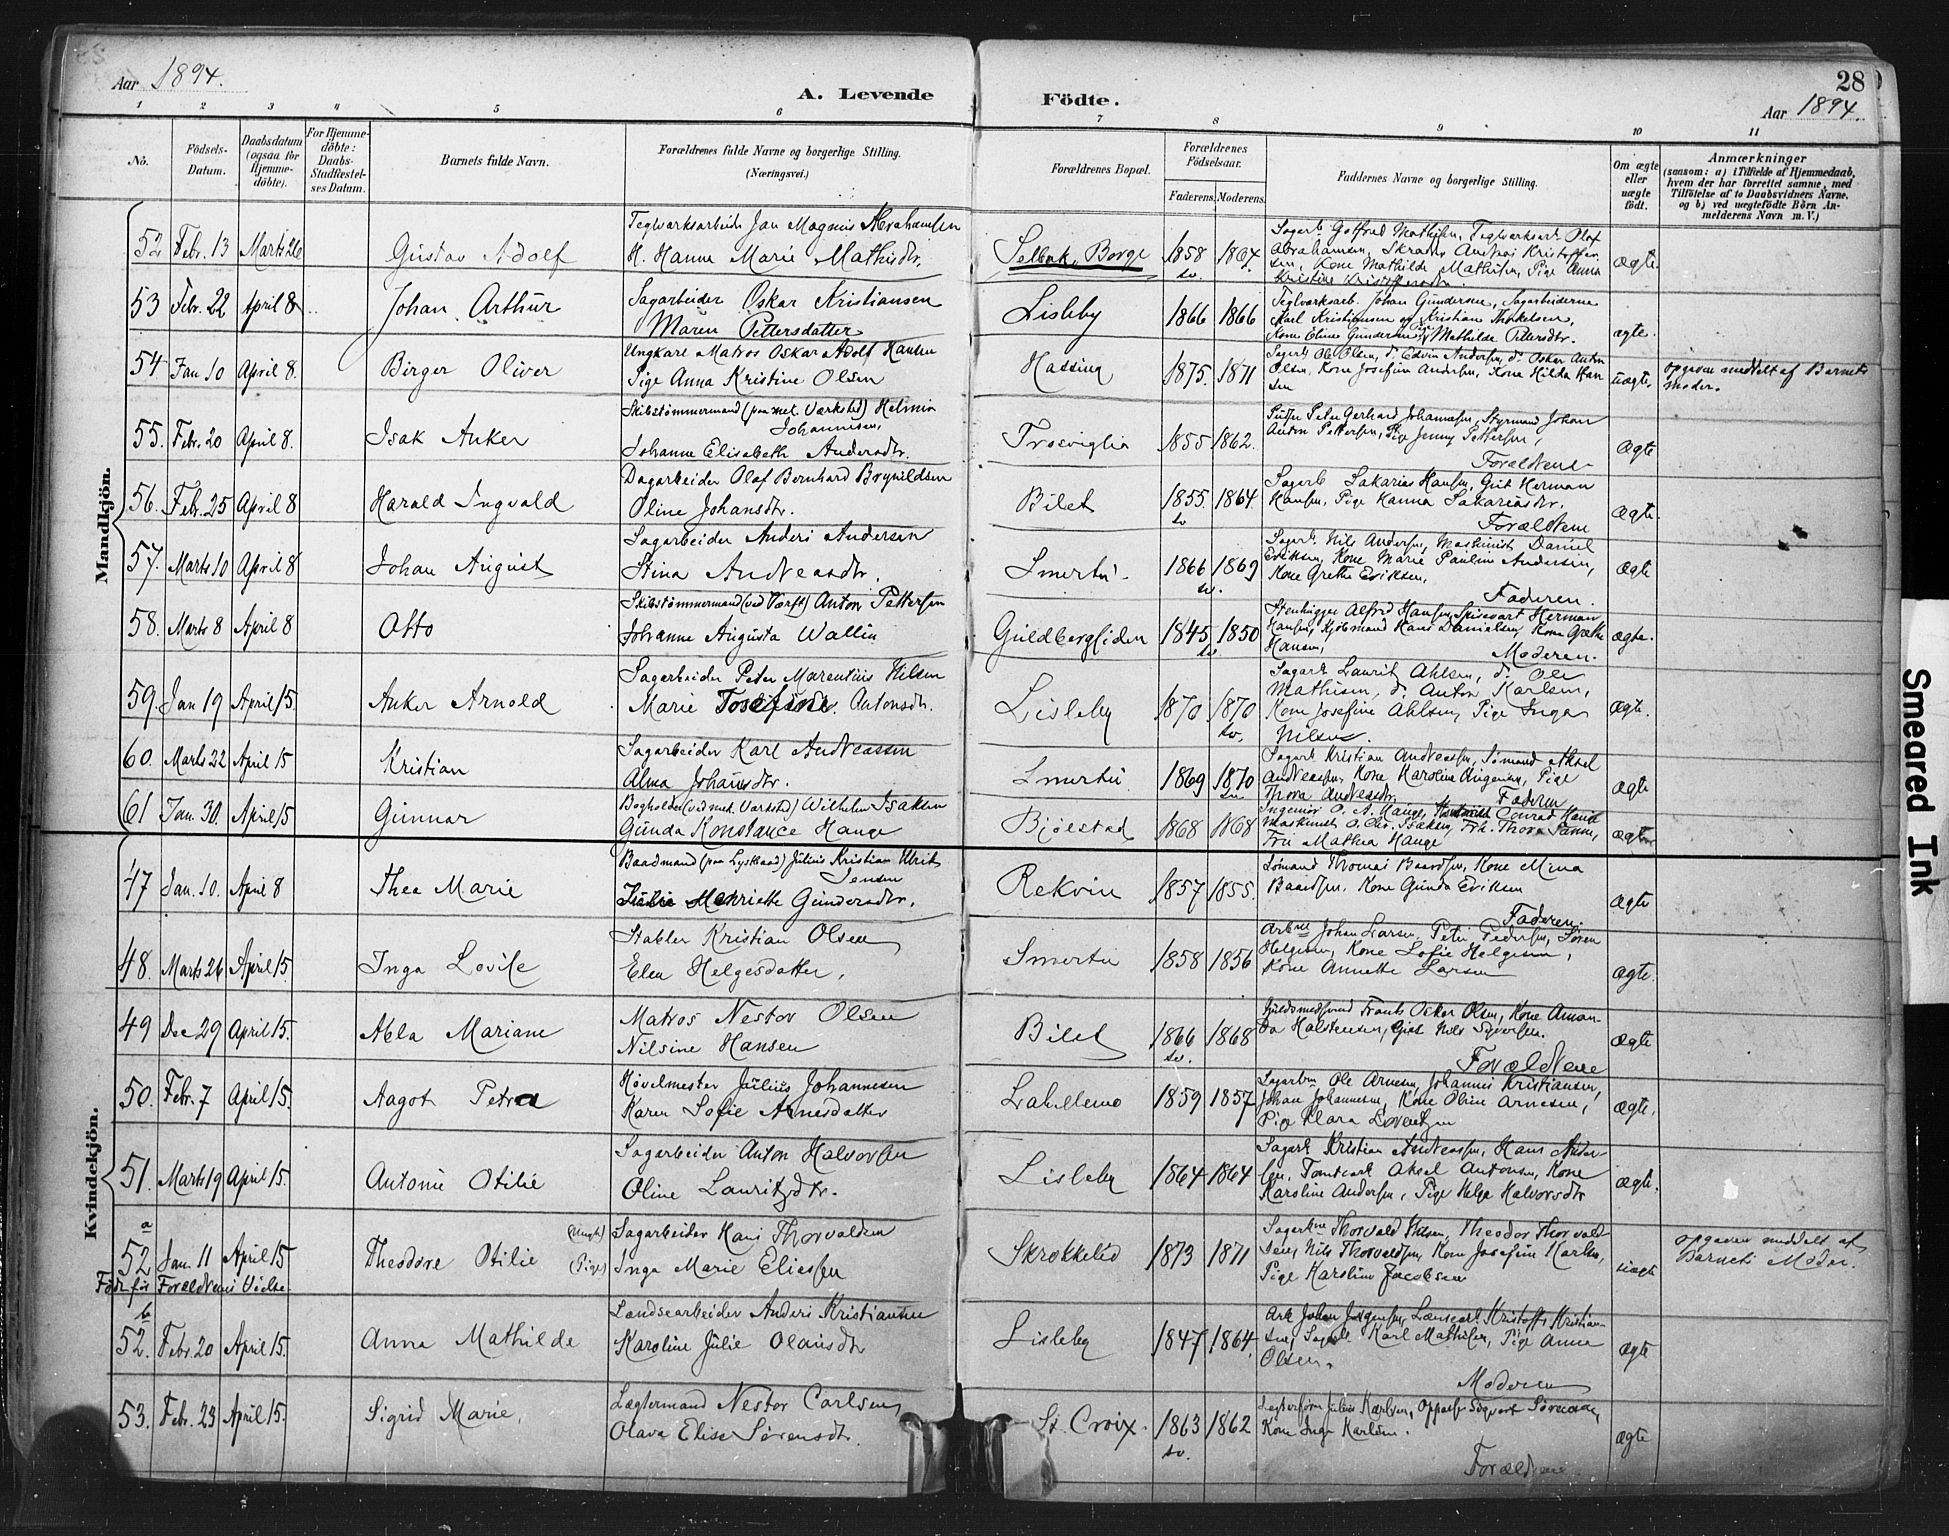 28
Aar 1894.
A. Levende Födte.
Aar 1894.
1 2 3 4 5 6 7 8 9 10 11
No.
Födsels-Datum.
Daabsdatum (ogsaa for Hjemme-döbte).
For Hjemme-döbte: Daabs-Stadfæstel-ses Datum.
Barnets fulde Navn.
Forældrenes fulde Navne og borgerlige Stilling.
(Næringsvei.)
Forældrenes Bopæl.
Forældrenes Födselsaar.
Faderens. Moderens.
Faddernes Navne og borgerlige Stilling.
Om ægte eller uægte födt.
Anmærkninger
(saasom: a) i Tilfælde af Hjemmedaab, hvem der har forrettet samme, med Tilföielse af to Daabsvidners Navne, og b) ved uægtefödte Börn An-melderens Navn m. V.)
Mandkjön.
52 Febr. 13 Marts 26 Gustav Adolf
Teglværksarbeider Jan Magnus Abrahamsen
H. Hanna Marie Mathisdtr.
Selbak, Borge 1858 1864 ægte.
53 Febr. 22 April 8 Johan Arthur
Sagarbeider Oskar Kristiansen
Maren Pettersdatter
Lisleby 1866 1866
Teglværksarb. Johan Gundersen, Sagarbeiderne
Karl Kristiansen og Kristian Thorkelsen,
Mathilde Pettersdtr.
ægte.
54 Jan 10 April 8. Birger Oliver
Ungkarl Matros Oskar Adolf Hansen
Pige Anna Kristine Olsen
Hassing 1875. 1871
Sagarb. Ole Olsen, d. Edvin Andersen, d. Oskar Anton
Olsen, Kone Josefine Andersen, Kone Hilda Han
sen
uægte opgaven meddelt af Barnets
Moder.
55. Febr. 20 April 8. Isak Anker
Skibstømmermand (paa mek. Værksted) Helmin
Johannesen,
Johanne Elisabeth Andersdtr.
Trosviglia 1855 1862.
Peter Gerhard Johannesen, Styrmand Johan
Anton Pettersen, Pige Jenny Pettersen,
Forældrene
ægte
56. Febr. 25 April 8 Harald Ingvald
Dagarbeider Olaf Bernhard Brynildsen
Oline Johansdtr.
Bilet 1855. 1864.
Sagarb. Sakarias Hansen, Gut Herman
Hansen, Pige Hanna Sakariasdtr.
Forældrene
ægte.
57. Marts 10 April 8 Johan August
Sagarbeider Anders Andersen
Stina Andreasdtr.
Smertu. 1866 1869
Sagarb. Nils Andersen, Maskinist Daniel
Eriksen, Kone Marie Pauline Andersen,
Kone Grethe Eriksen,
Faderen.
ægte
58. Marts 8 April 8 Otto
Skibstømmermand (ved Værft) Anton Pettersen
Johanne Augusta Wallin
Guldbergsiden 1845 1850
Stenhugger Alfred Hansen, Spisevært Herman
Hansen, Kjøbmand Hans Danielsen, Kone Grethe
Hansen,
Moderen.
ægte.
59. Jan 19 April 15. Anker Arnold
Sagarbeider Peter Marentius Nilsen
Marie Josefine Antonsdtr.
Lisleby 1870. 1870
Sagarb. Laurits Ahlsen, d. Ole
Mathisen, d. Anton Karlsen,
Kone Josefine Ahlsen, Pige Inga
Nilsen.
ægte.
60. Marts 22 April 15 Kristian
Sagarbeider Karl Andreassen
Alma Johansdtr.
Smertu 1869 1870
Sagarb. Kristian Andreassen, Sømand Aksel
Andreassen, Kone Karoline Pige
Thora Andreasdtr. Faderen
ægte
61 Jan. 30. April 15. Gunnar
Bogholder (ved mek. Værksted) Wilhelm Isaksen
Gunda Konstance Hauge
Bjølstad 1868 1868
Ingeniør O. A. Hauge, Conrad Hauge
Maskinist O. Chr. Isaksen, Frk. Thora
Fru Mathea Hauge
ægte
Kvindekjön.
47 Jan. 10. April 8 Thea Marie
Baadsmand (paa Lystbaad) Julius Kristian Ulrik
Jensen
Julie Henriette Gundersdtr.
Rekvin 1857 1855.
Sømand Thomas Baardsen, Kone Mina
Baardsen, Kone Gunda Eriksen
Faderen.
ægte
48. Marts 26 April 15. Inga Lovise
Stabler Kristian Olsen
Elen Helgesdatter,
Smertu 1858 1856
Johan Larsen, Petter Pedersen, Søren
Helgesen, Kone Sofie Helgesen,
Kone Annette Larsen
ægte.
49 Dec 29 April 15. Abla Mariane
Matros Nestor Olsen
Nilsine Hansen
Bilet 1866 1868
Guldsmedsvend Frants Oskar Olsen, Kone Aman-
da Halstensen, Gut Nils Syversen.
Forældrene
ægte
50. Febr. 7 April 15. Aagot Petra
Høvelmester Julius Johannesen
Karen Sofie Arnesdatter
Labellemo 1859 1857
Sagarbm Ole Arnesen, Johannes Kristiansen,
Johan Johannesen, Kone Oline Arnesen,
Pige Klara Lorentzen
ægte.
51. Marts 19 April 15. Antonie Otilie
Sagarbeider Anton Halvorsen
Oline Lauritzdtr.
Lisleby 1864 1864
Sagarb Kristian Andreassen, Hans Ander-
sen, Tomtearb Aksel Antonsen, Kone
Karoline Andersen, Pige Helga Halvorsdtr
ægte.
52 a Jan. 11 April 15 Theodore Otilie
(Ungk.) Sagarbeider Hans Thorvaldsen
(Pige) Inga Marie Eliassen
Født før Forældrenes Vielse.
Skrokkelid 1873 1871
Sagarbne Thorvald Theodor Thorvald-
sen, Nils Thorvaldsen, Kone Josefine Karlsen,
Pige Karoline Jacobsen
uægte opgaven meddelt af
Barnets Moder.
52. b Febr. 20 April 15. Anna Mathilde
Landsearbeider Anders Kristiansen
Karoline Julie Olausdtr
Lisleby 1847 1864.
Arb. Johan Jørgensen, Lænsearb Kristoffer Kristian-
sen, Sagarb Karl Mathisen, Pige Anna
Olsen,
Moderen
ægte
53. Febr. 23 April 15. Sigrid Marie,
Lægtermand Nestor Carlsen,
Olava Elise Sørensdtr.
St. Croix. 1863 1862
Julius Karlsen, Sigvart Sørensen,
Kone Inga Karlsen.
Forældrene
ægte
Smeared Ink